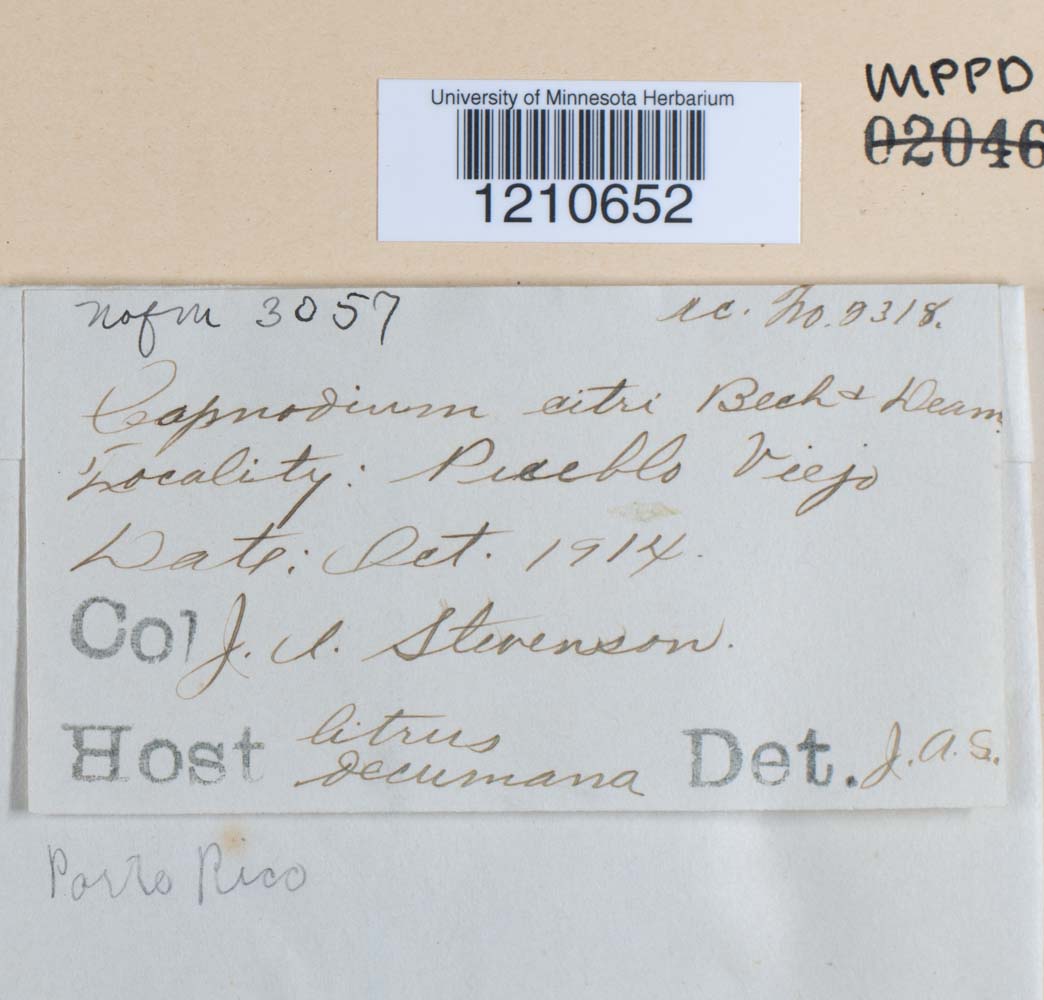 University of Minnesota Herbarium
1210652
MPPD
02046
Nofm 3057
Ac. No. 2318.
Capnodium citri Berk & Desm.
Locality: Pueblo Viejo
Date: Oct. 1914.
Col J. A. Stevenson.
Host Citrus decumana Det. J.A.S.
Porto Rico